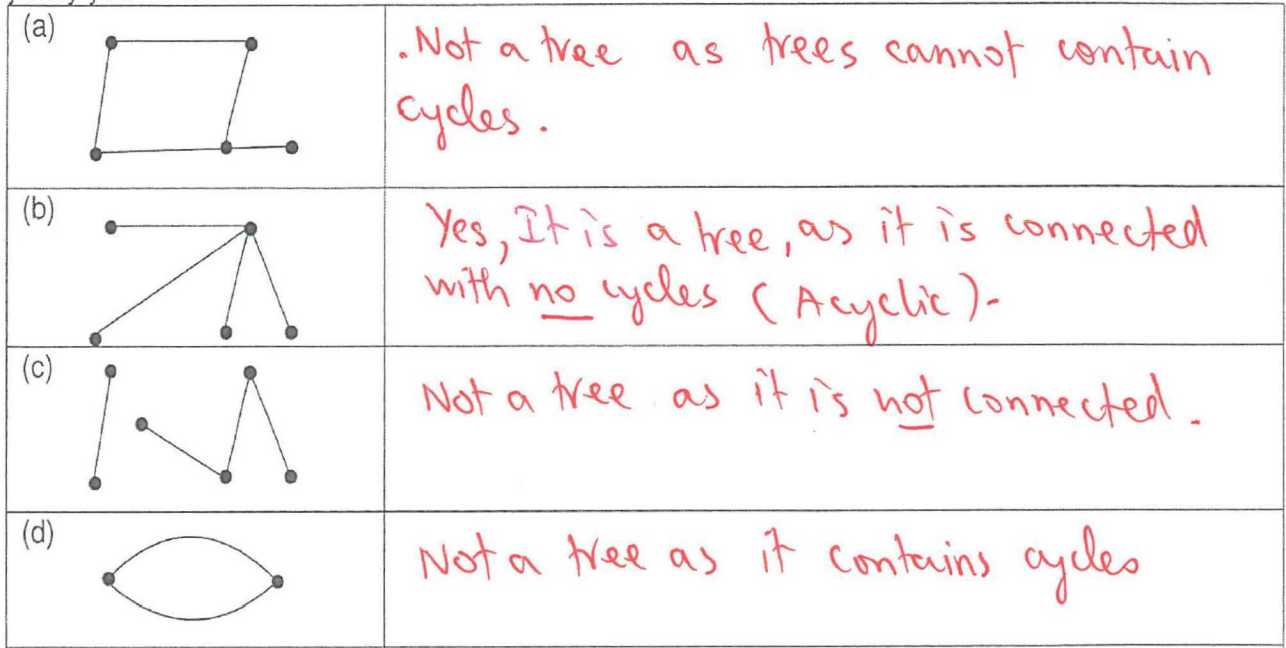 (a)
.Not a tree as trees cannot contain
cycles.
(b)
Yes, It is a tree, as it is connected
with no cycles (Acyclic).
(c)
Not a tree as it is not connected.
(d)
Not a tree as it contains cycles